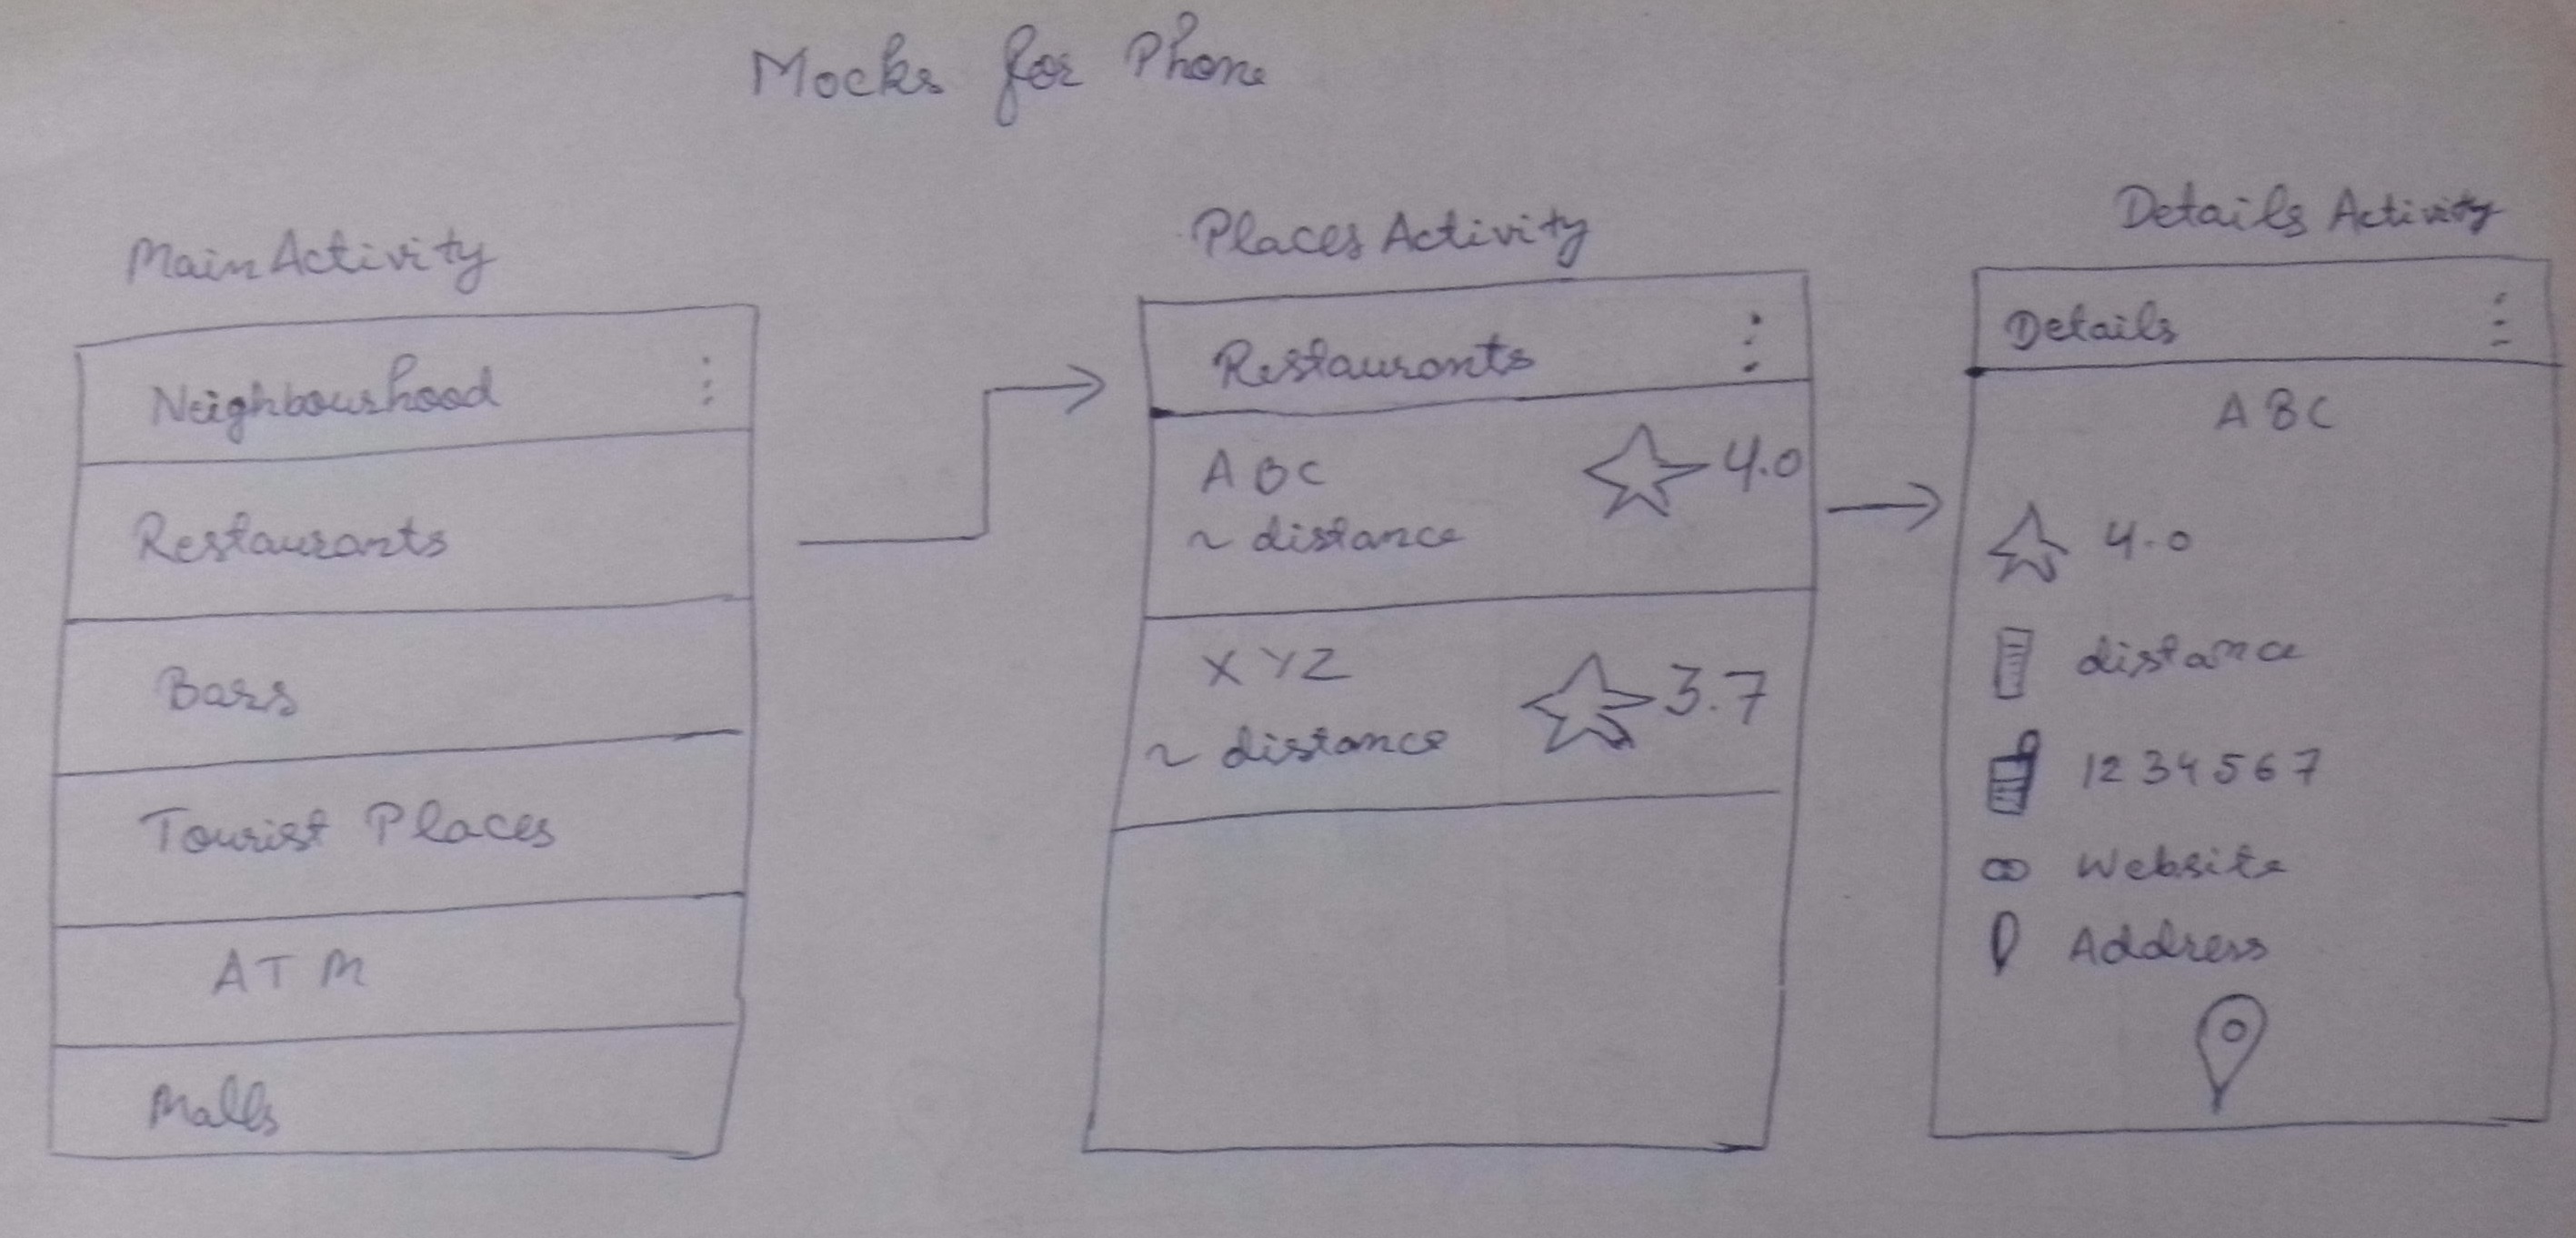 Mocks for Phone
Main Activity
Neighbourhood
Restaurants
Bars
Tourist Places
ATM
Malls
Places Activity
Restaurants
ABC
4.0
~ distance
XYZ
3.7
~ distance
Details Activity
Details
ABC
4.0
distance
1234567
Website
Address